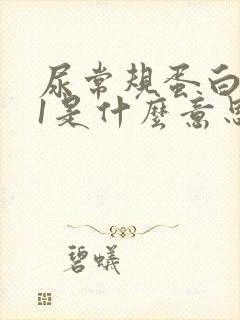 尿常规蛋白
1是什麼意思
碧蟻